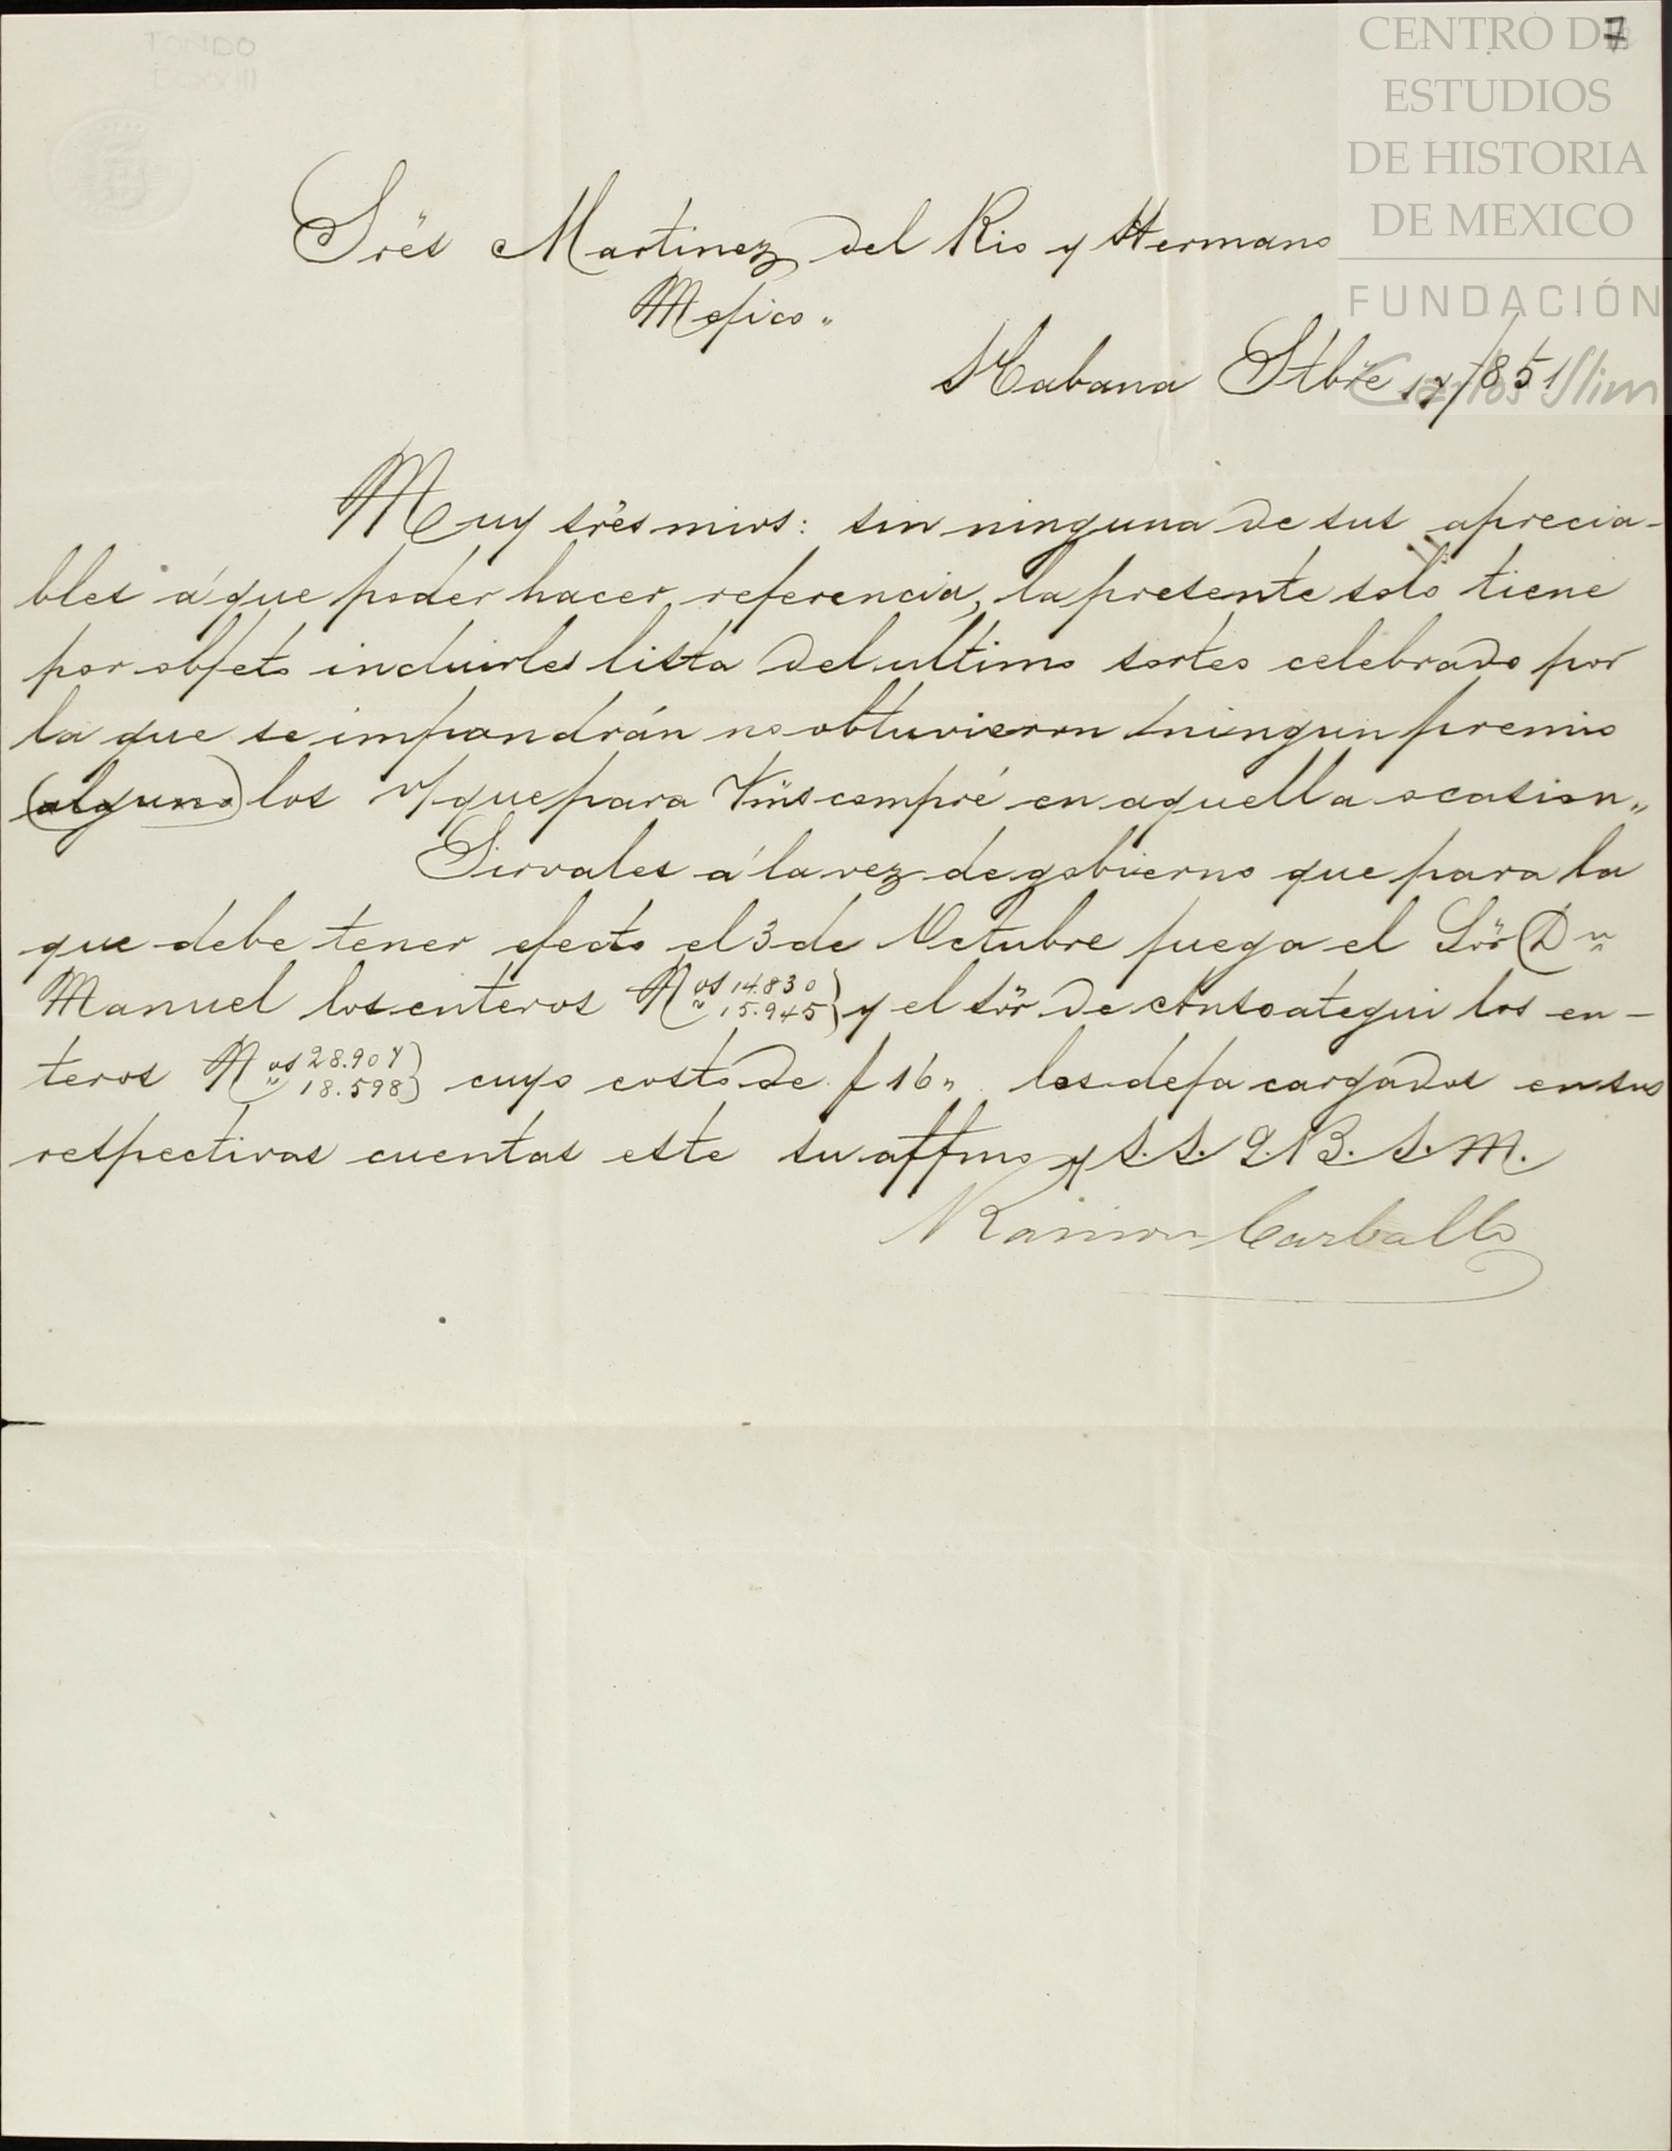 CENTRO DE
7
ESTUDIOS
DE HISTORIA
DE MEXICO
FUNDACIÓN
Carlos Slim
Srës Martinez del Rio y Hermano
Mejico„
Habana Stbrë 17/851
Muy srës mios: sin ninguna de sus aprecia-
bles á que poder hacer referencia, la presente solo tiene
por objeto incluirles lista del ultimo sorteo celebrado por
la que se impondrán no obtuvieron ningun premio
(alguno) los que para Vms compré en aquella ocasion„
Sirvales á la vez de gobierno que para la
que debe tener efecto el 3 de Octubre juega el Sör Dn
Manuel los enteros Nos 14.830
" 15.945} y el sör de Ansoategui los en-
teros Nos 28.907
" 18.598} cuyo costo de 16„ los deja cargados en sus
respectivas cuentas este su affmo y S.S. Q.B.S.M.
Ramon Carballo